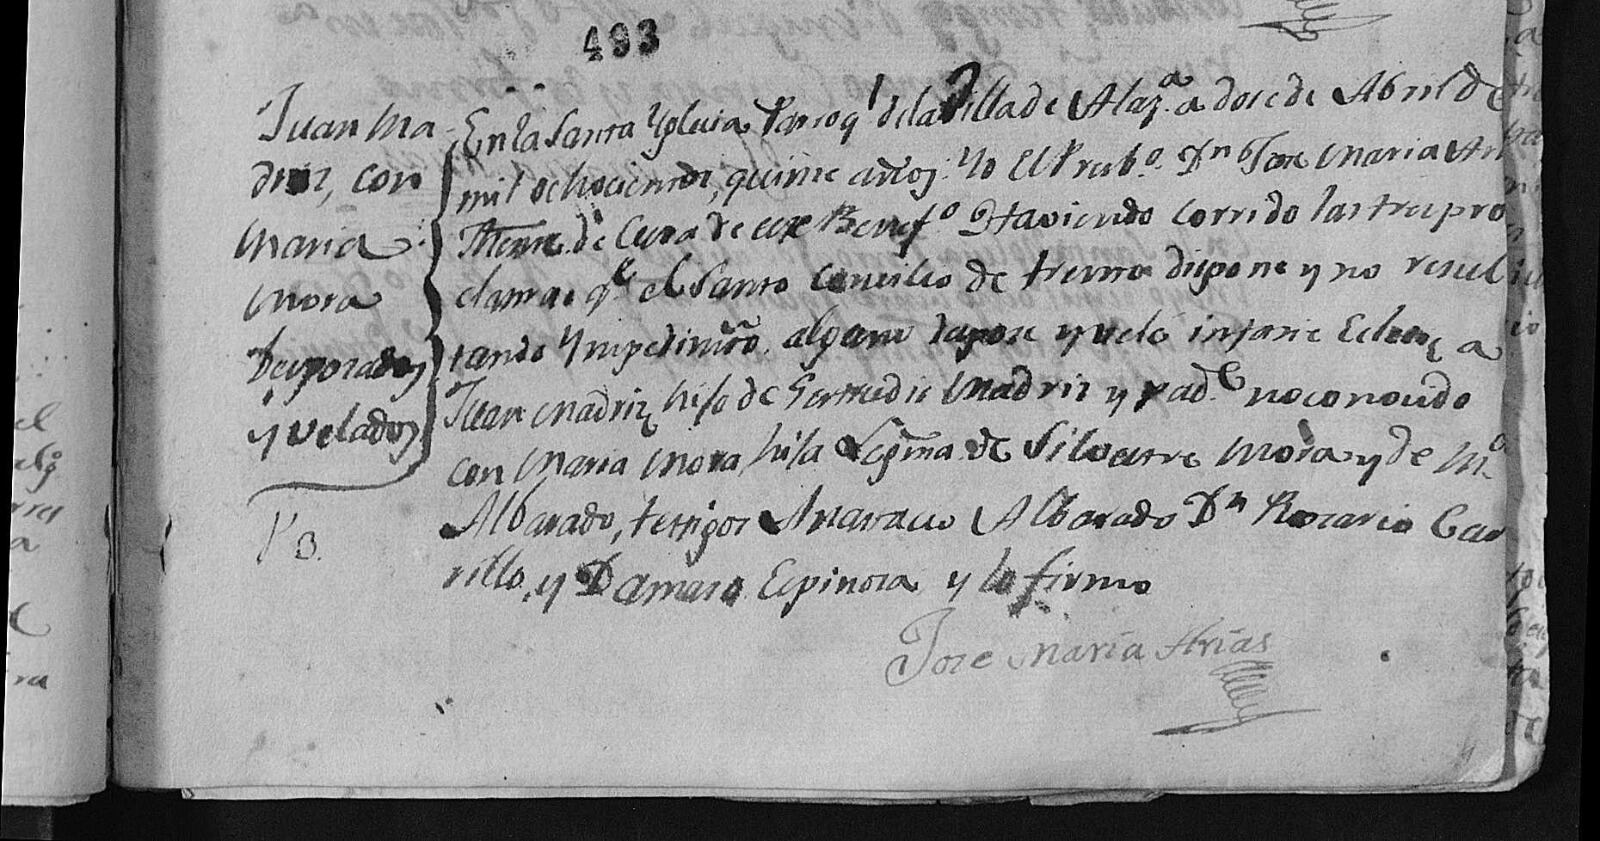 493
Juan Ma
driz, con
Maria
Mora
Desposados
y velados
P 3.
En la Santa Yglecia Parroql dela Villa de Alaza a dose de Abril de
mil ochocientos, quinse años: Yo El Presbo. Dn Jose Maria Ari
Thente. de Cura de este Benefo Haviendo corrido las tres pro
clamas qe el Santo Concilio de trento dispone y no resul
tando Ympedimto. alguno despose y velé in fasie Eclecie a
Juan Madriz hijo de Gertrudis Madriz y pade no conosido
con Maria Mora hija Legma. de Silvestre Mora y de Ma
Albarado, testigos Anastacio Albarado Dn Rosario Cas
rillo, y Damaso Espinosa y lo firmo
Jose Maria Arias